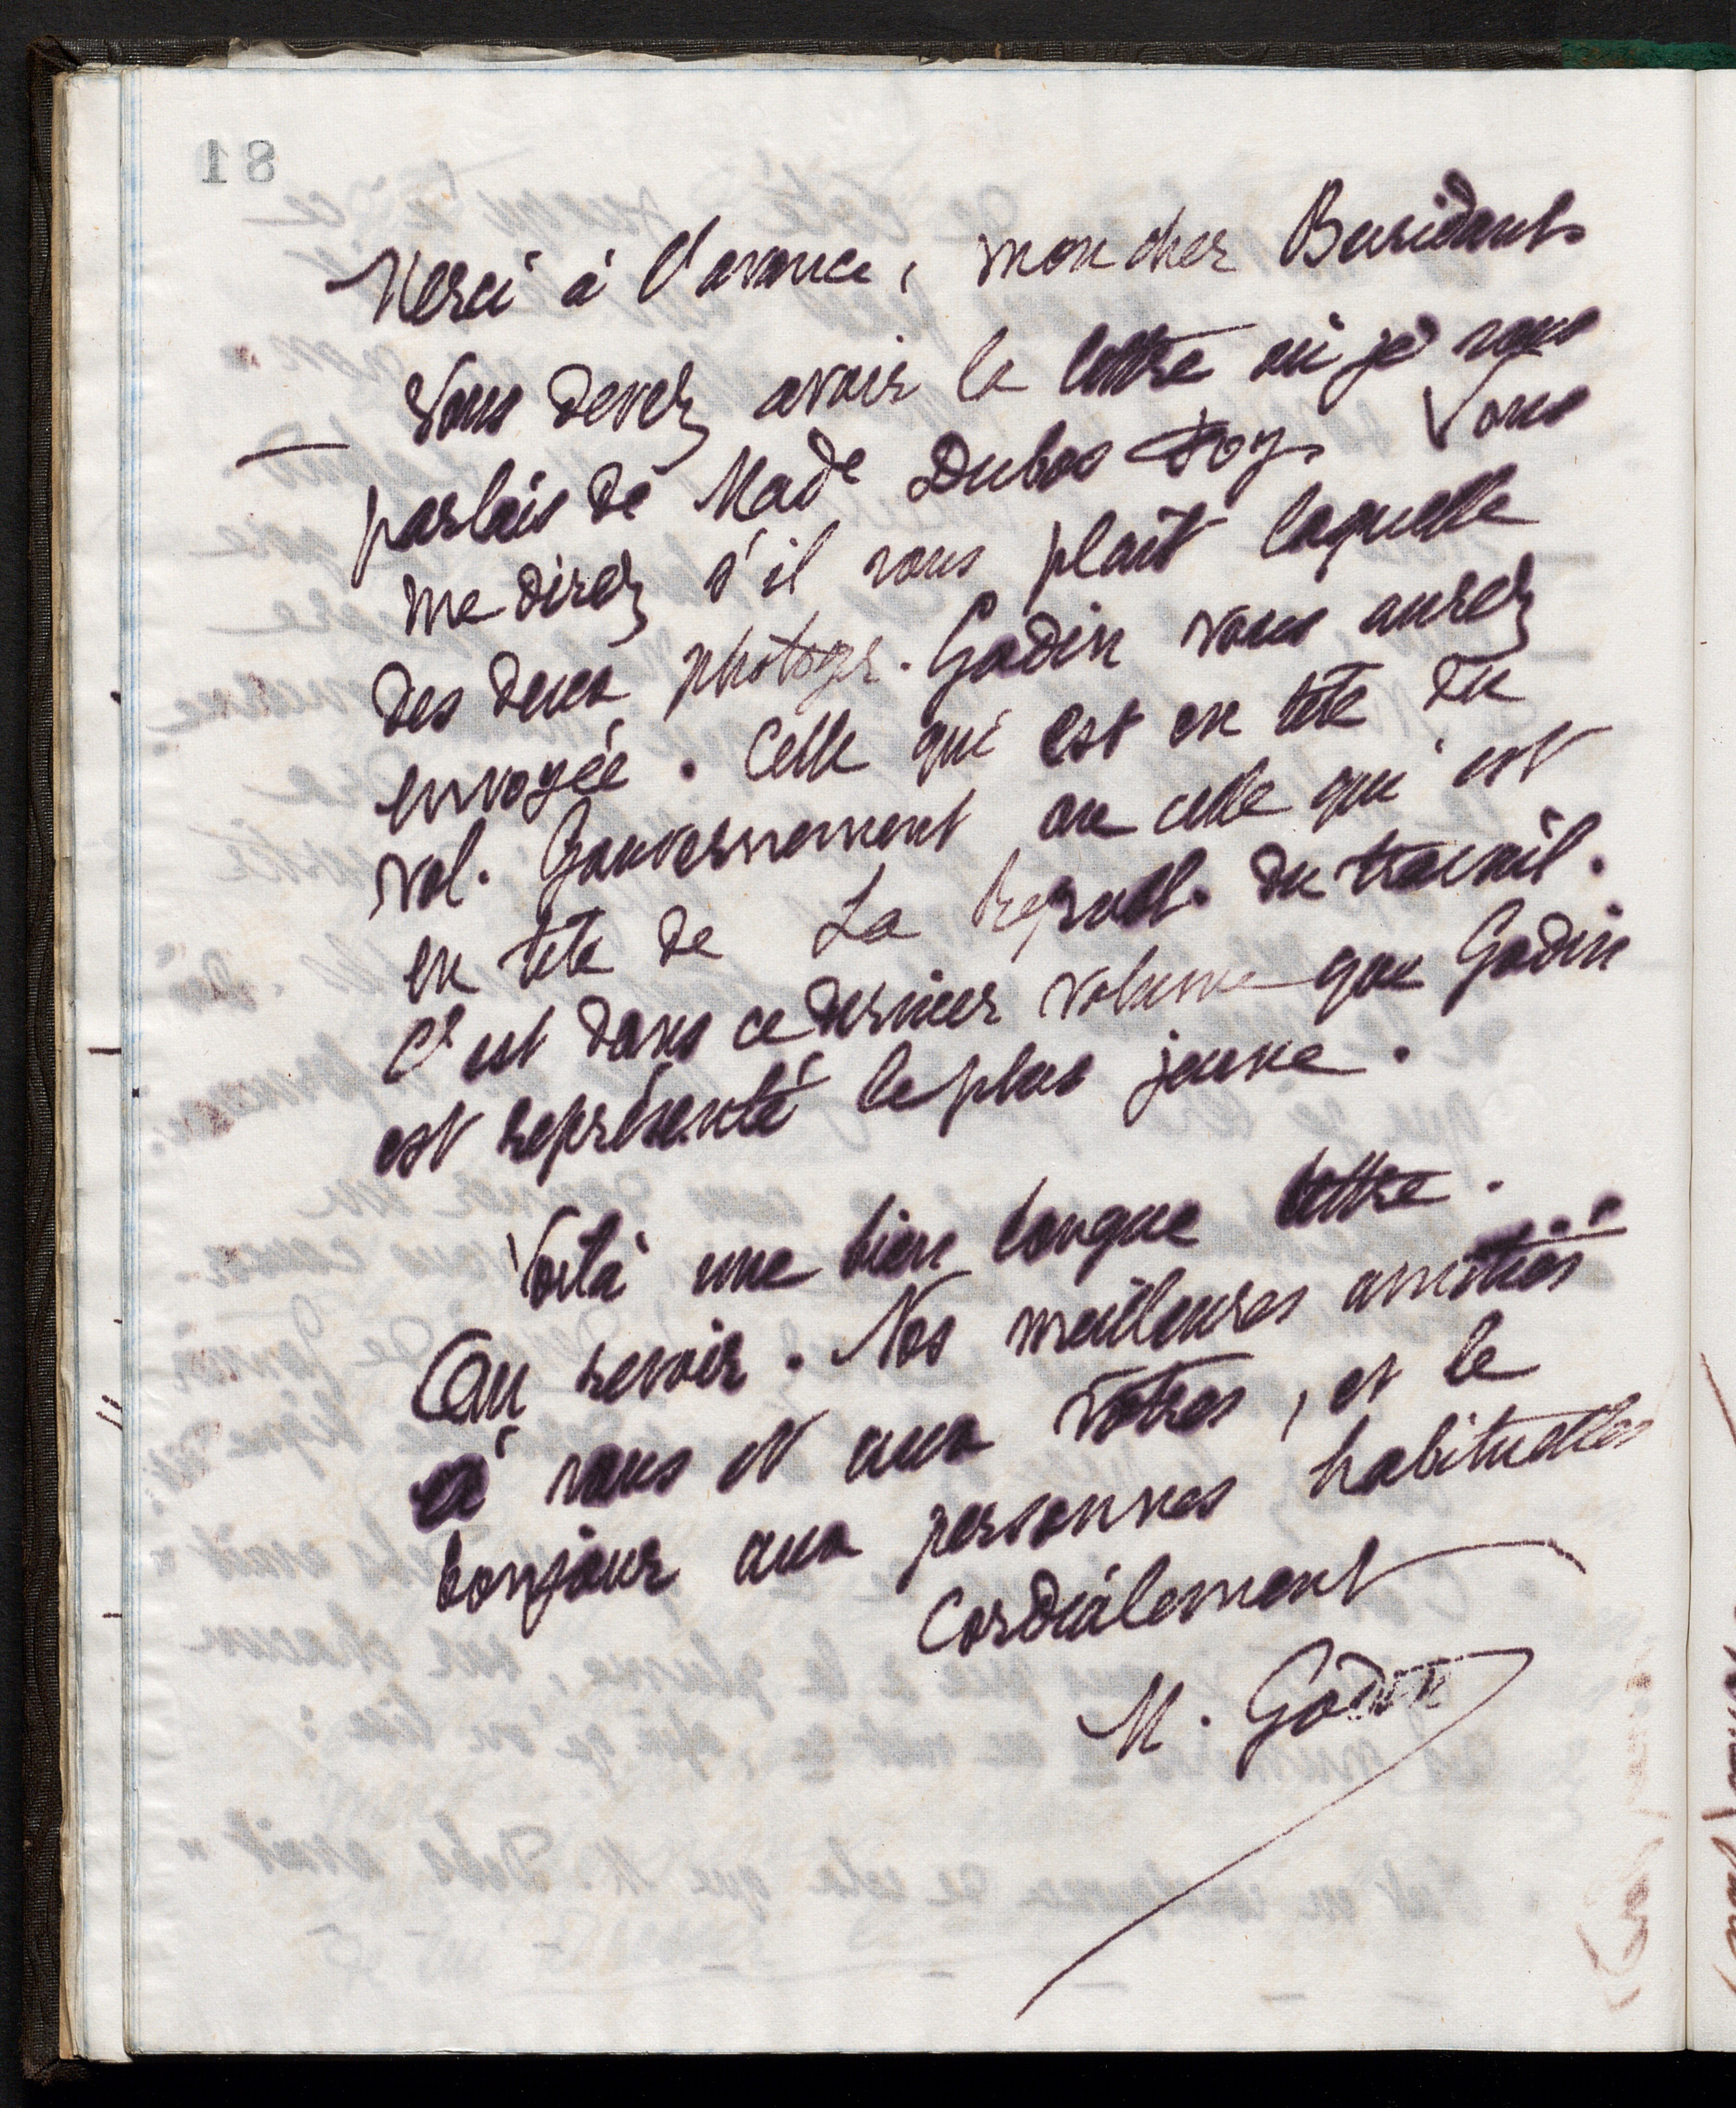 18
Merci à l'avance, mon cher Buridant.
— Vous devez avoir la lettre où je vous
parlais de Made Dubos Vous
me direz s'il vous plait laquelle
des deux photogr. Godin vous aurez
envoyée. Celle qui est en tête du
vol. Gouvernement ou celle qui est
en tête de La Republ. du travail.
C'est dans ce dernier volume que Godin
est représenté le plus jeune.
Voilà une bien longue lettre.
Au revoir. Nos meilleures amitiés
à vous et aux vôtres, et le
bonjour aux personnes habituelles
Cordialement
M. Godin